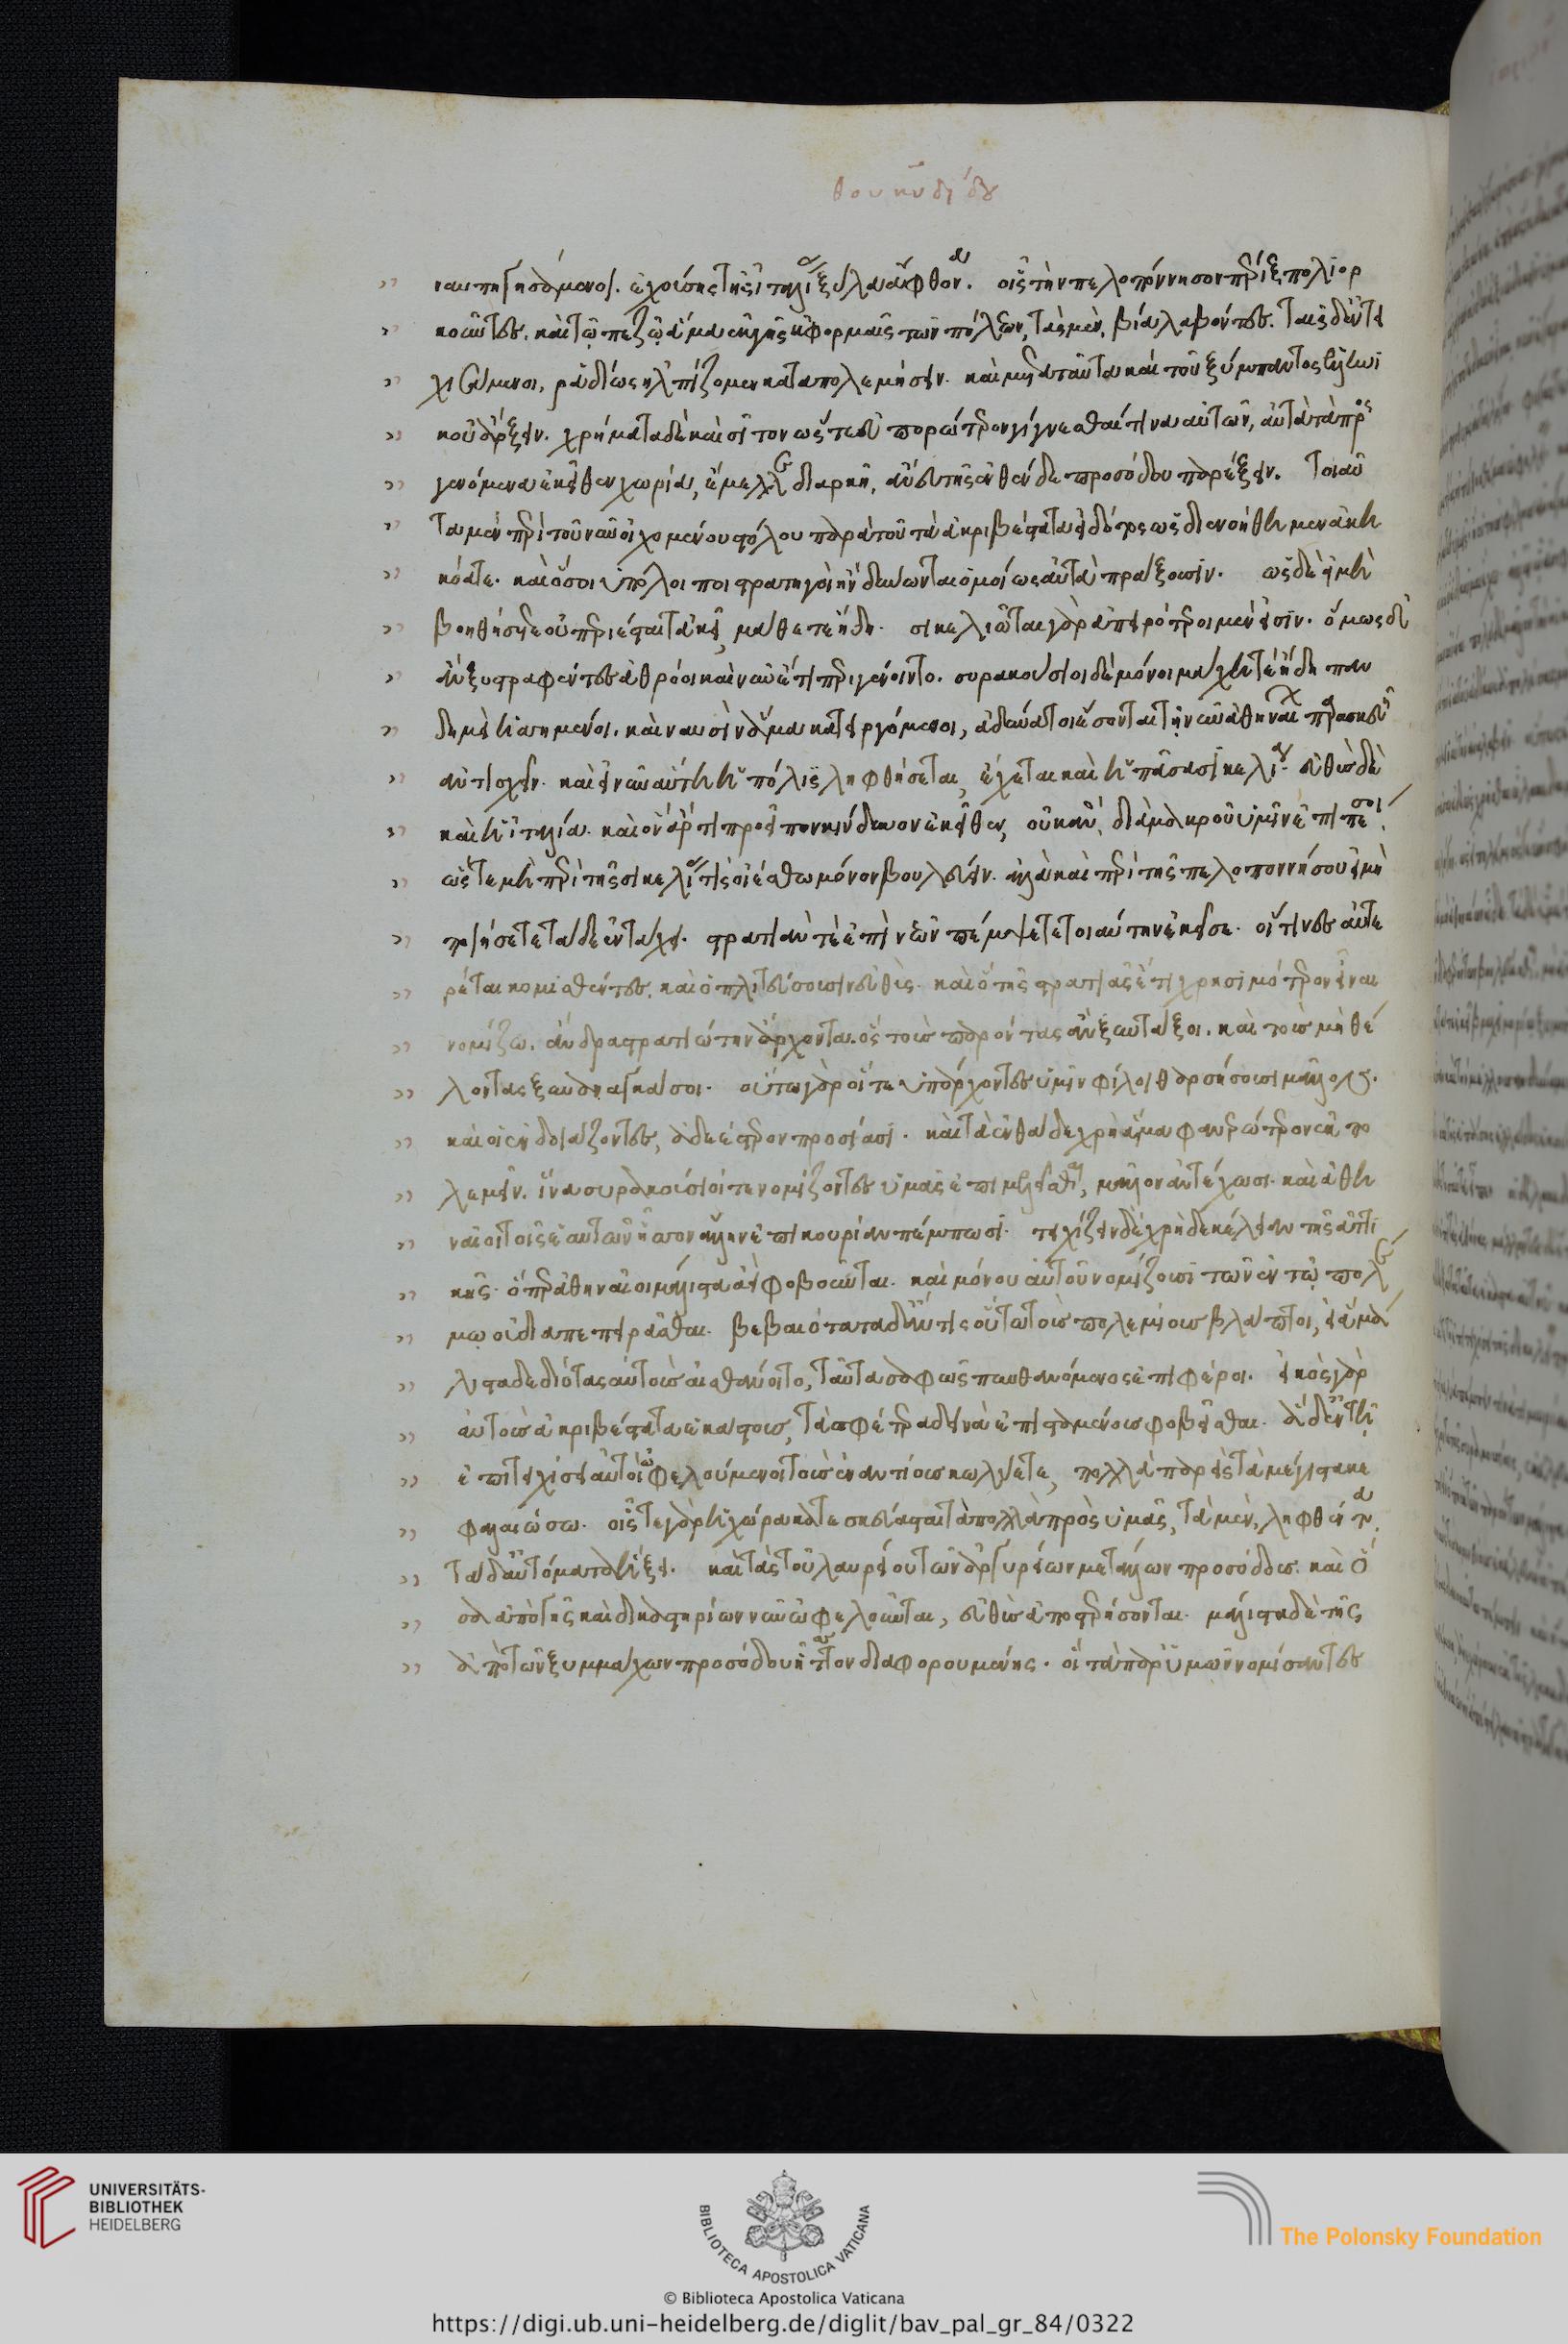 ναυπηγησάμενοι. ἐχούσης τῆς ἰταλίας ξύλα ἄφθονα. οἷς τὴν πελοπόννησον πέριξ πολιορ
κοῦντες. καὶ τῷ πεζῷ ἅμα ἐκ γῆς ἐφορμαῖς τῶν πόλεων, τὰς μὲν, βίᾳ λαβόντες. ταῖς δ' ἐντει
χισάμενοι, ῥαδίως ἠλπίζομεν καταπολεμήσειν. καὶ μετὰ ταῦτα καὶ τοῦ ξύμπαντος ἑλληνι
κοῦ ἄρξειν. χρήματα δὲ καὶ σῖτον ὥστε εὐπορώτερον γίγνεσθαί τι αὐτῶν, αὐτὰ τὰ προσ
γενόμενα ἐκεῖθεν χωρία, ἔμελλε διαρκῆ, ἄνευ τῆς ἐνθένδε προσόδου παρέξειν. τοιαῦ
τα μὲν περὶ τοῦ νῦν οἰχομένου στόλου παρὰ τοῦ τὰ ἀκριβέστατα εἰδότος ὡς διενοήθημεν ἀκη
κόατε. καὶ ὅσοι ὑπόλοιποι στρατηγοὶ ἢν δύνωνται ὁμοίως αὐτὰ πράξουσιν. ὡς δὲ εἰ μὴ
βοηθήσητε οὐ περιέσται τἀκεῖ, μάθετε ἤδη. σικελιῶται γὰρ ἀπειρότεροι μέν εἰσιν. ὅμως δ'
ἂν ξυστραφέντες ἀθρόοι καὶ νῦν ἔτι περιγένοιντο. συρακούσιοι δὲ μόνοι μάχῃ τε ἤδη παν
δημεὶ ἡσσημένοι. καὶ ναυσὶν ἅμα κατειργόμενοι, ἀδύνατοι ἔσονται τῇ νῦν ἀθηναίων παρασκευῇ
ἀντισχεῖν. καὶ εἰ ἡ πόλις ληφθήσεται, ἔχεται καὶ ἡ πᾶσα σικελία. εὐθὺς δὲ
καὶ ἡ ἰταλία. καὶ ὃν ἄρτι προεῖπον κίνδυνον ἐκεῖθεν, οὐκ ἂν, διὰ μακροῦ ὑμῖν ἐπιπέσοι.
ὥστε μὴ περὶ τῆς σικελίας τις οἰέσθω μόνον βουλεύειν. ἀλλὰ καὶ περὶ τῆς πελοποννήσου εἰ μὴ
ποιήσετε τάδε ἐν τάχει. στρατιάν τε ἐπὶ νεῶν πέμψετε τοιαύτην ἐκεῖσε. οἵτινες αὐτε
ρέται κομισθέντες. καὶ ὁπλιτεύσουσιν εὐθὺς. καὶ ὃ τῆς στρατιᾶς ἔτι χρησιμότερον εἶναι
νομίζω. ἄνδρα σπαρτιάτην ἄρχοντα. ὡς τοὺς παρόντας ἂν ξυντάξοι. καὶ τοὺς μὴ θέ
λοντας ξαναγκάσοι. οὕτω γὰρ οἵ τε ὑπάρχοντες ὑμῖν φίλοι θαρσήσουσι μᾶλλον.
καὶ οἱ ἐνδοιάζοντες, ἀδεέστερον προσίασι. καὶ τὰ ἐνθάδε χρὴ ἅμα φανερώτερον ἐκπο
λεμεῖν. ἵνα συρακούσιοί τε νομίζοντες ὑμᾶς ἐπιμελεῖσθαι, μᾶλλον ἀντέχωσι. καὶ ἀθη
ναῖοι τοῖς ἑαυτῶν ἧσσον ἄλλην ἐπικουρίαν πέμπωσι. τειχίζειν δὲ χρὴ δεκέλειαν τῆς ἀττι
κῆς. ὅπερ ἀθηναῖοι μάλιστα ἀεὶ φοβοῦνται. καὶ μόνου αὐτοῦ νομίζουσι τῶν ἐν τῷ πολέ
μῳ οὐ διαπεπειρᾶσθαι. βεβαιότατα δ' ἄν τις οὕτω τοὺς πολεμίους βλάπτοι, εἰ ἃ μά
λιστα δεδιότας αὐτοὺς αἰσθάνοιτο, ταῦτα σαφῶς πυνθανόμενος ἐπιφέροι. εἰκὸς γὰρ
αὐτοὺς ἀκριβέστατα ἑκάστους, τὰ σφέτερα δεινὰ ἐπισταμένους φοβεῖσθαι. ἃ δ' ἐν τῇ
ἐπιτειχίσει αὐτοὶ ὠφελούμενοι τοὺς ἐναντίους κωλύετε, πολλὰ παρεὶς τὰ μέγιστα κε
φαλαιώσω. οἷς τε γὰρ ἡ χώρα κατεσκεύασται τὰ πολλὰ πρὸς ὑμᾶς, τὰ μὲν, ληφθέντα
τὰ δ' αὐτόματα ἥξει. καὶ τὰς τοῦ λαυρείου τῶν ἀργυρείων μετάλλων προσόδους. καὶ ὅ
σα ἀπὸ γῆς καὶ δικαστηρίων νῦν ὠφελοῦνται, εὐθὺς ἀποστερήσονται. μάλιστα δὲ τῆς
ἀπὸ τῶν ξυμμάχων προσόδου ἧττον διαφορουμένης. οἳ τὰ παρ' ὑμῶν νομίσαντες